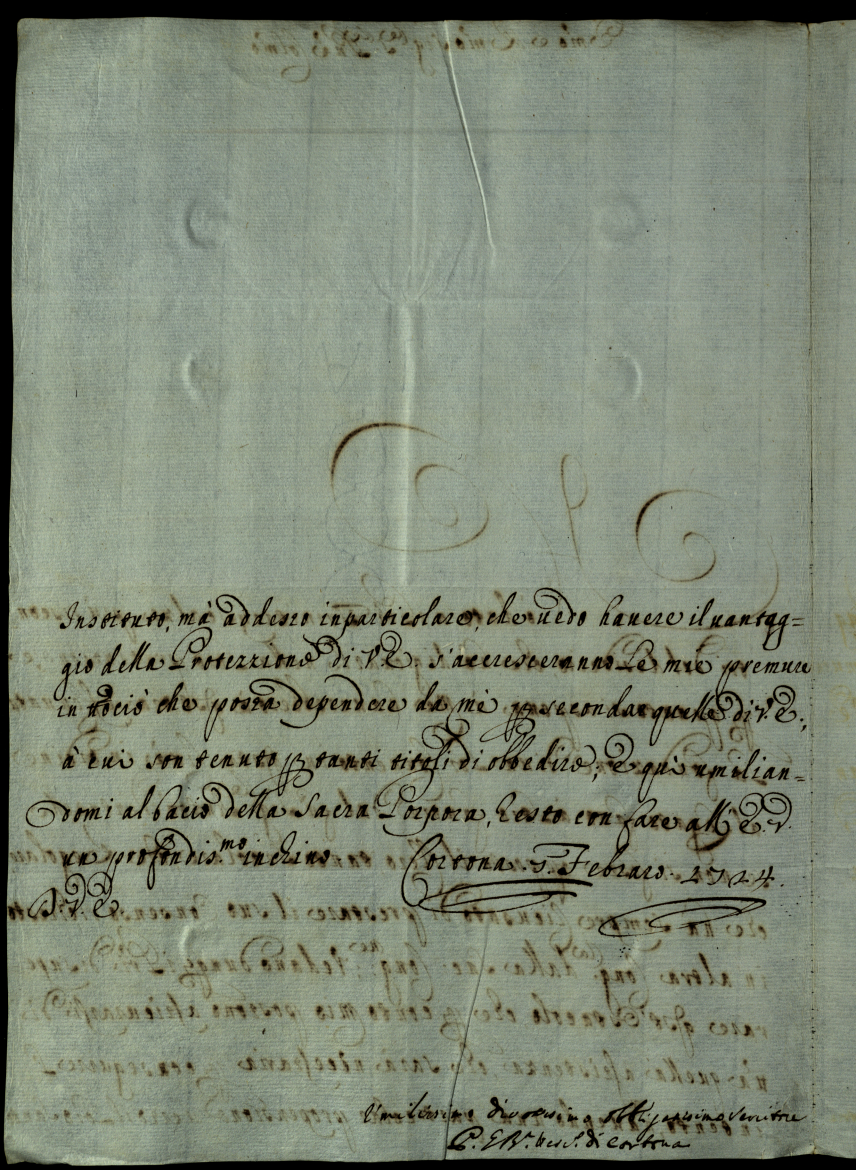 Instituto, mà addesso in particolare, che uedo hauere il uantag=
gio della Protezzione di V. E. s'accresceranno le mie premure
in ciò che possa dependere da mè p secondar quelle di V. E.,
à cui son tenuto p tanti titoli di obbedire; E quì umilian=
domi al bacio della Sacra Porpora, Resto con fare all' E. V.
un profondis.mo inchino Cortona 5. Febraro. 1724.
D. V. E.
Umilissimo diuotissimo obbligatissimo Seruitore
P. Vesc.o di Cortona